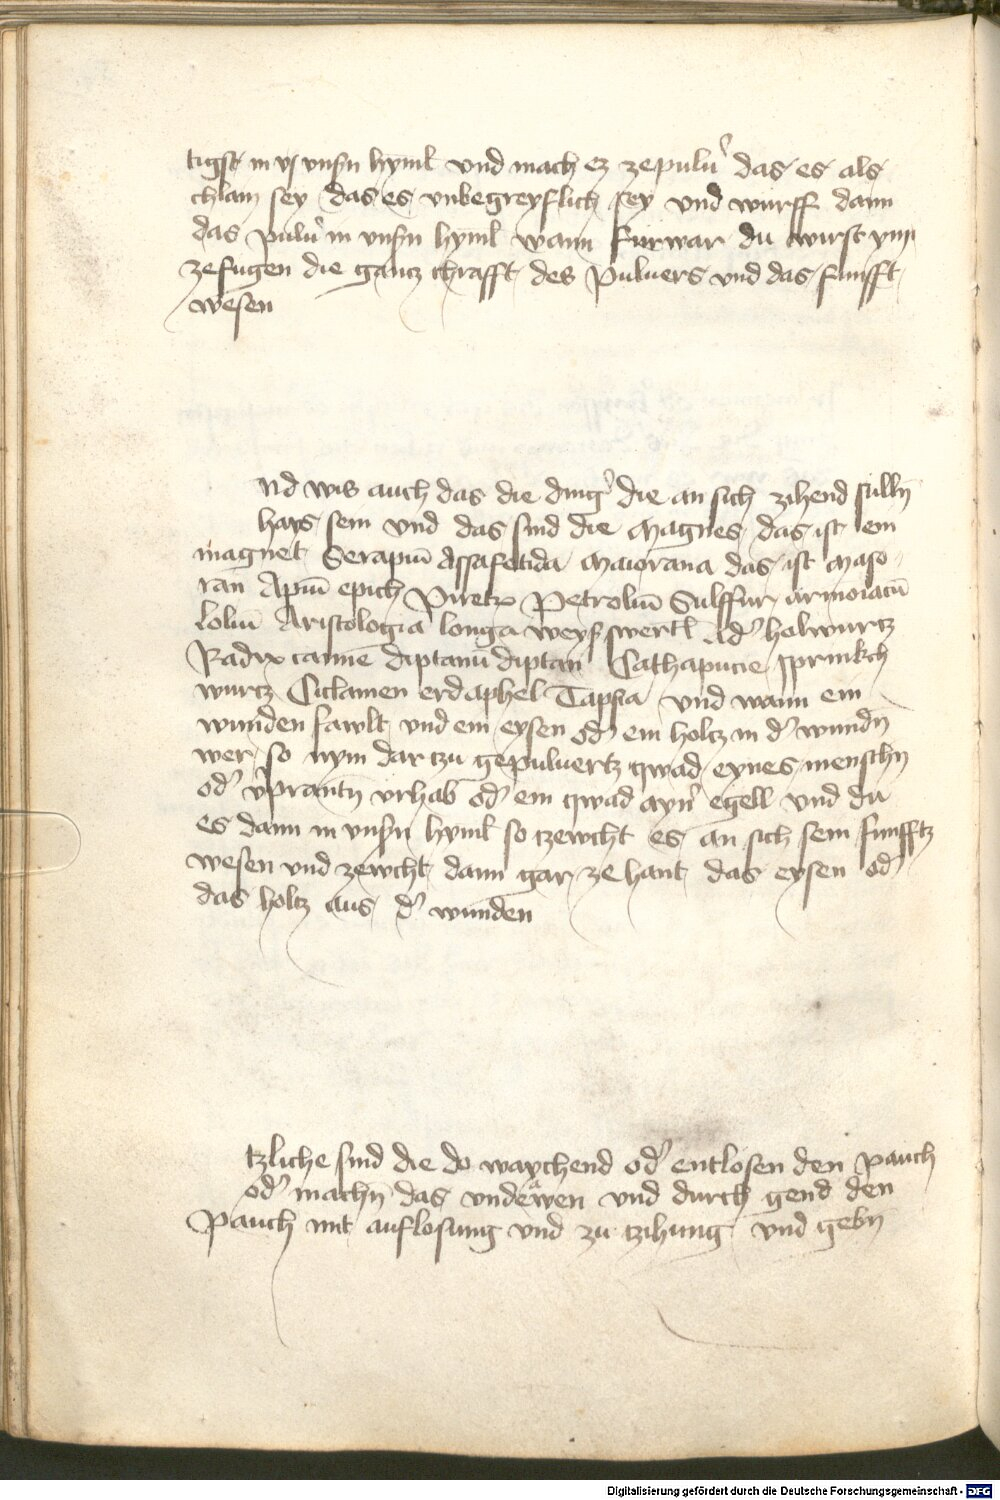 tigst in vj vnsern hyml vnd mach ez ze puluer das es als
chlain sey das es vnbegreyflich sey vnd wurff dann
das puluer in vnsern hyml wann furwar du wirst ynn
zefugen die gantz chrafft des Puluers vnd das funfft
wesen
nd wis auch das die ding die an sich zihend sulln̄
hays sein vnd das sind die Magnes das ist ein
magnet Serapiū Assafetida Maiorana das ist Maso
ran Apiū epich Piretr Petroliū Sulffur armoiacū
Loliū Aristologia longa weys swertl od' holwurtz
Radix cannē diptanū diptan Cathapucie sprinkch
wurtz Ciclamen erdaphel Tapsia vnd wann ein
wunden fawlt vnd ein eysen od' ein holtz in d' wundn̄
wer so nym dar tzu gepuluertz qwad eynes menschn̄
od' v'prantn̄ vrhab od' ein qwad ayn' egell vnd du
es dann in vnsern hyml so tzewcht es an sich sein funfftz
wesen vnd zewcht dann gar ze hant das eysen od'
das holtz aus d' wunden
tzliche sind die do waychend od' entlosen den pauch
od' machn̄ das vndewen vnd durch gend den
Pauch mit auflosung vnd zu tzihung vnd gebn̄
Digitalisierung gefördert durch die Deutsche Forschungsgemeinschaft - DFG